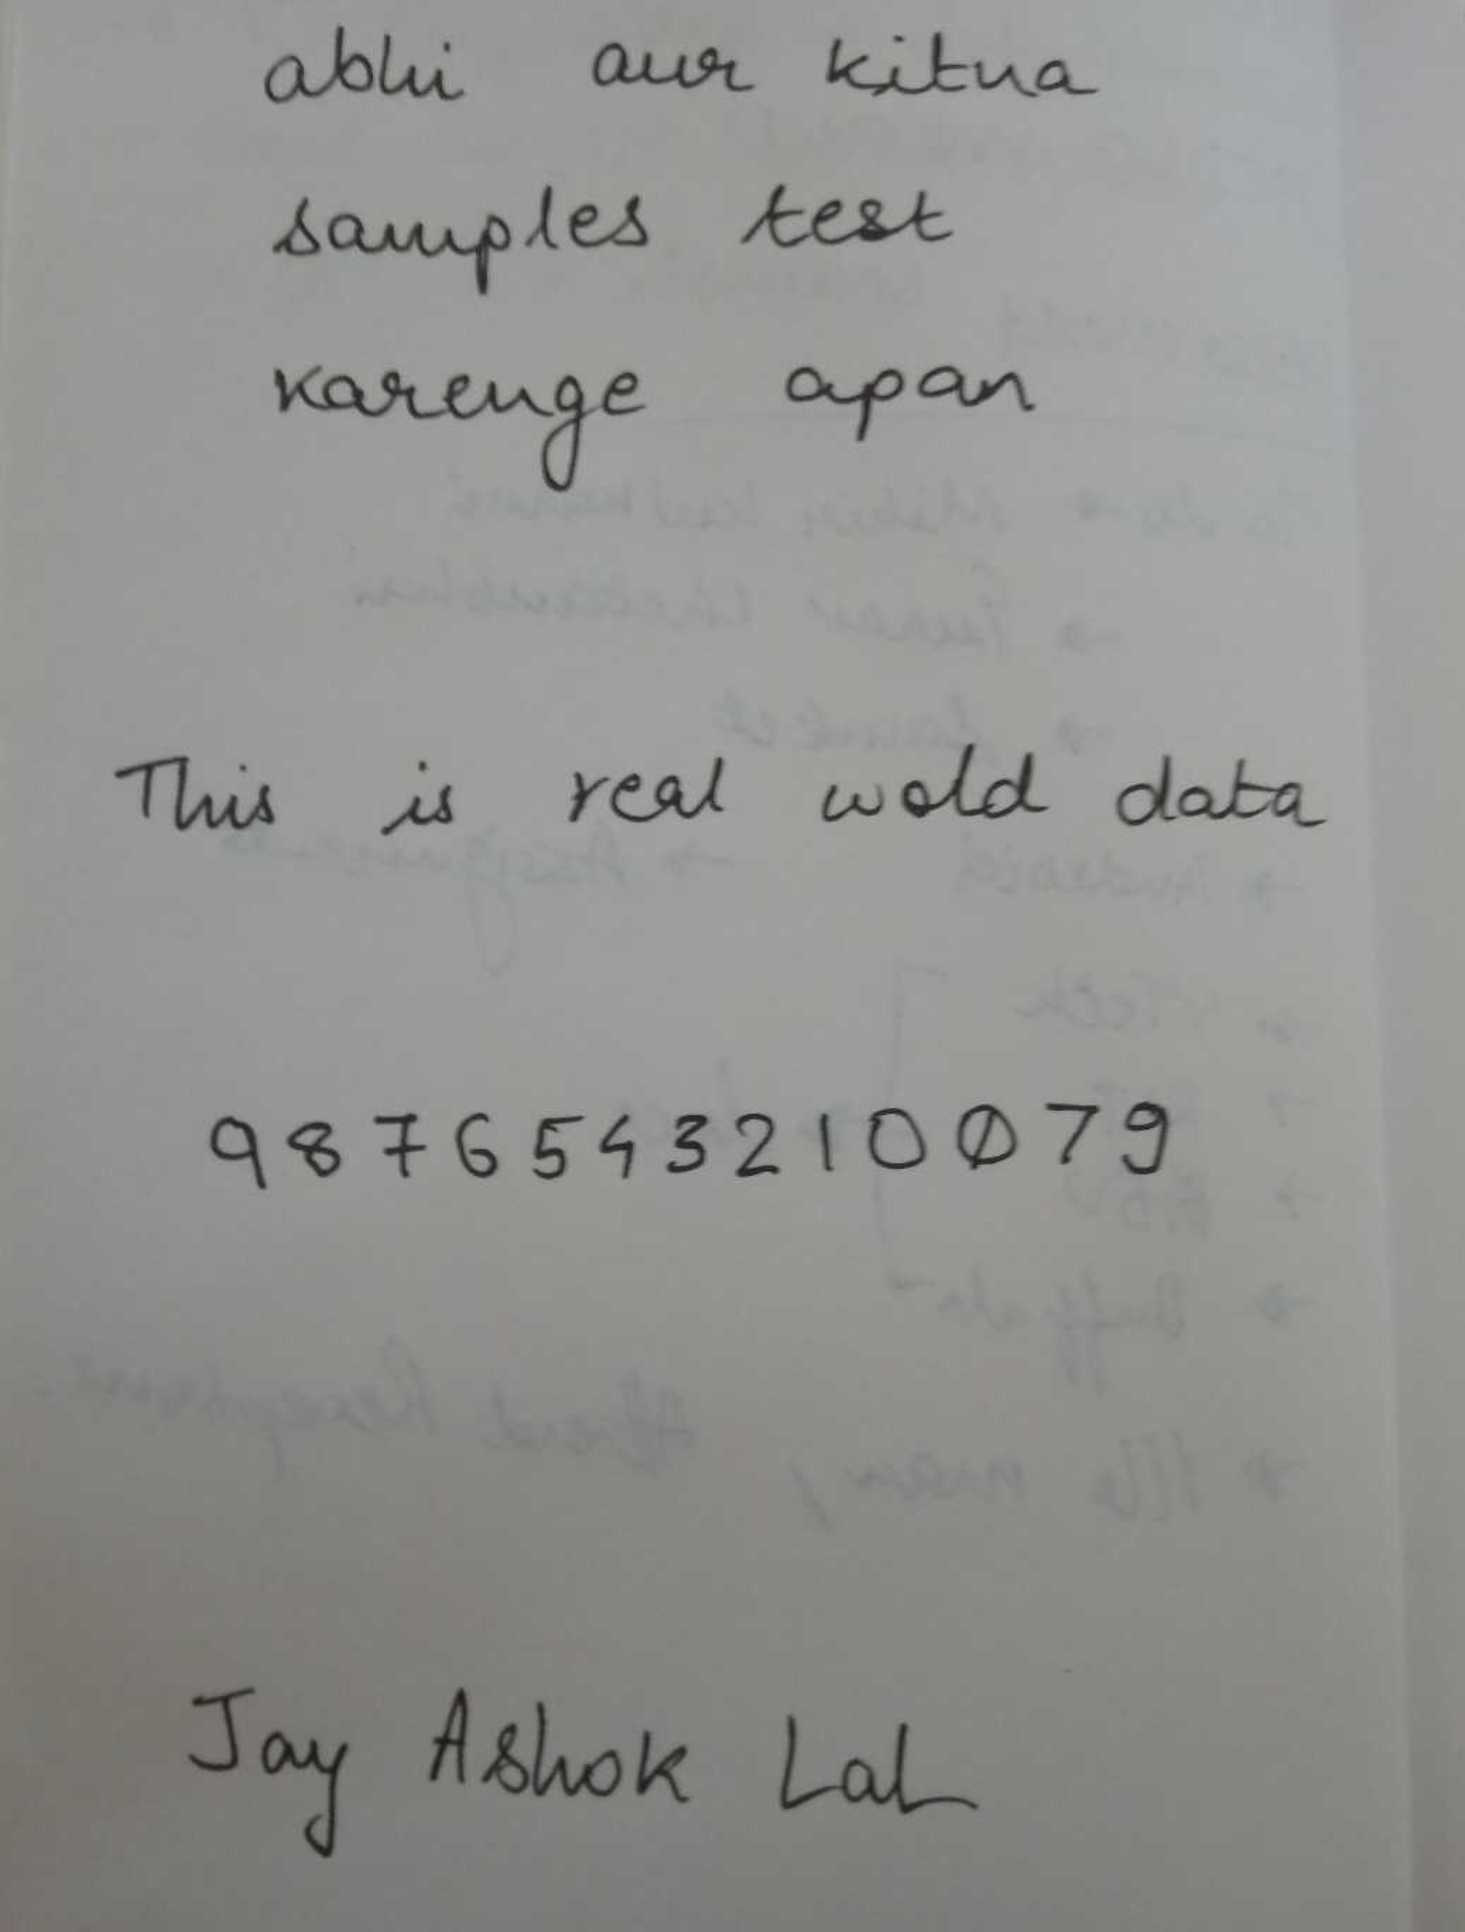 abhi aur kitna
samples test
karenge apan
This is real wold data
9876543210079
Jay Ashok Lal